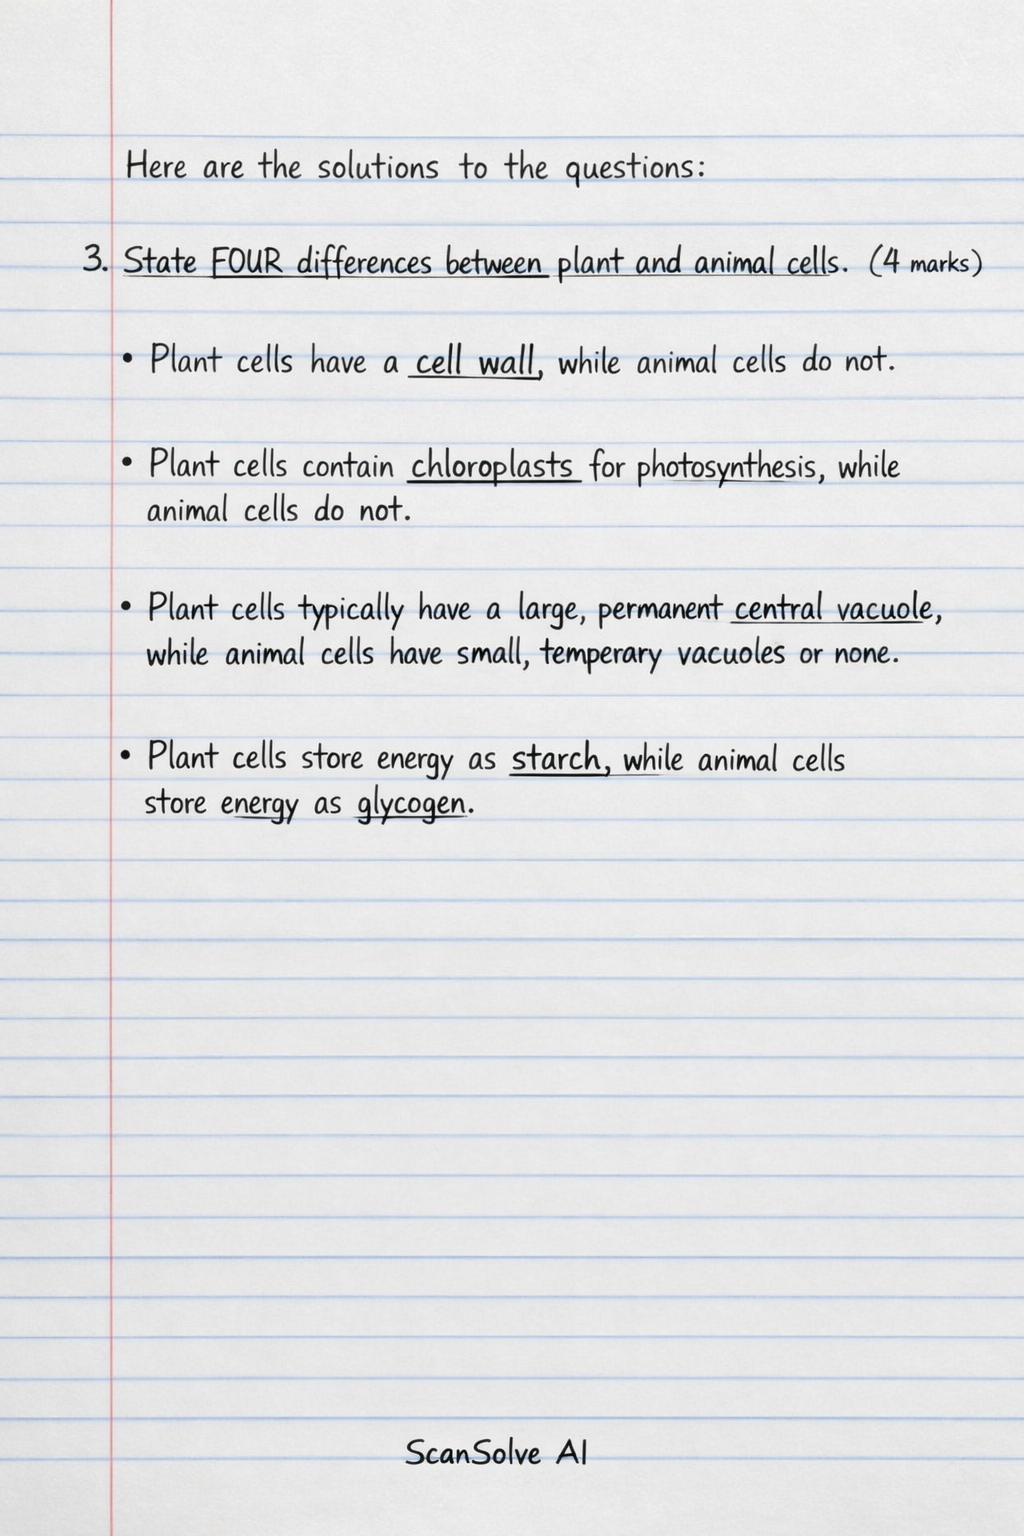 Here are the solutions to the questions:
3. State FOUR differences between plant and animal cells. (4 marks)
• Plant cells have a cell wall, while animal cells do not.
• Plant cells contain chloroplasts for photosynthesis, while
animal cells do not.
• Plant cells typically have a large, permanent central vacuole,
while animal cells have small, temperary vacuoles or none.
• Plant cells store energy as starch, while animal cells
store energy as glycogen.
ScanSolve AI